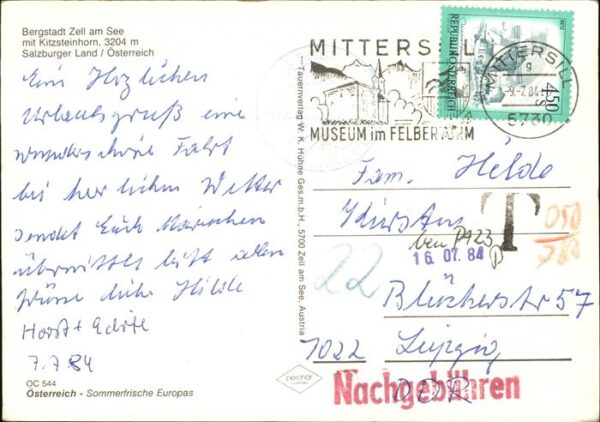 Bergstadt Zell am See
mit Kitzsteinhorn, 3204 m
Salzburger Land / Österreich
Ein Herzlichen
Urlaubsgruß eine
wunderschöne Fahrt
bei herlichen Wetter
sendet Euch
Hilde
Horst +
7.7.84
OC 544
Österreich - Sommerfrische Europas
Tauernverlag W. K. Hühne Ges.m.b.H., 5700 Zell am See, Austria
pechar
MITTERSILL
MUSEUM im FELBERTURM
REPUBLIK ÖSTERREICH
RETZ
S 4.50
MITTERSILL
g
-9.-7.84
5730
Fam. Hilde
T
050
16. 07. 84
22
Blücherstr 57
7022 Leipzig
DDR
Nachgebühren